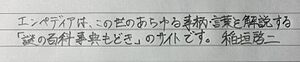 エンペディアは、この世のあらゆる事柄・言葉を解説する
「謎の百科事典もどき」のサイトです。 稲垣啓二